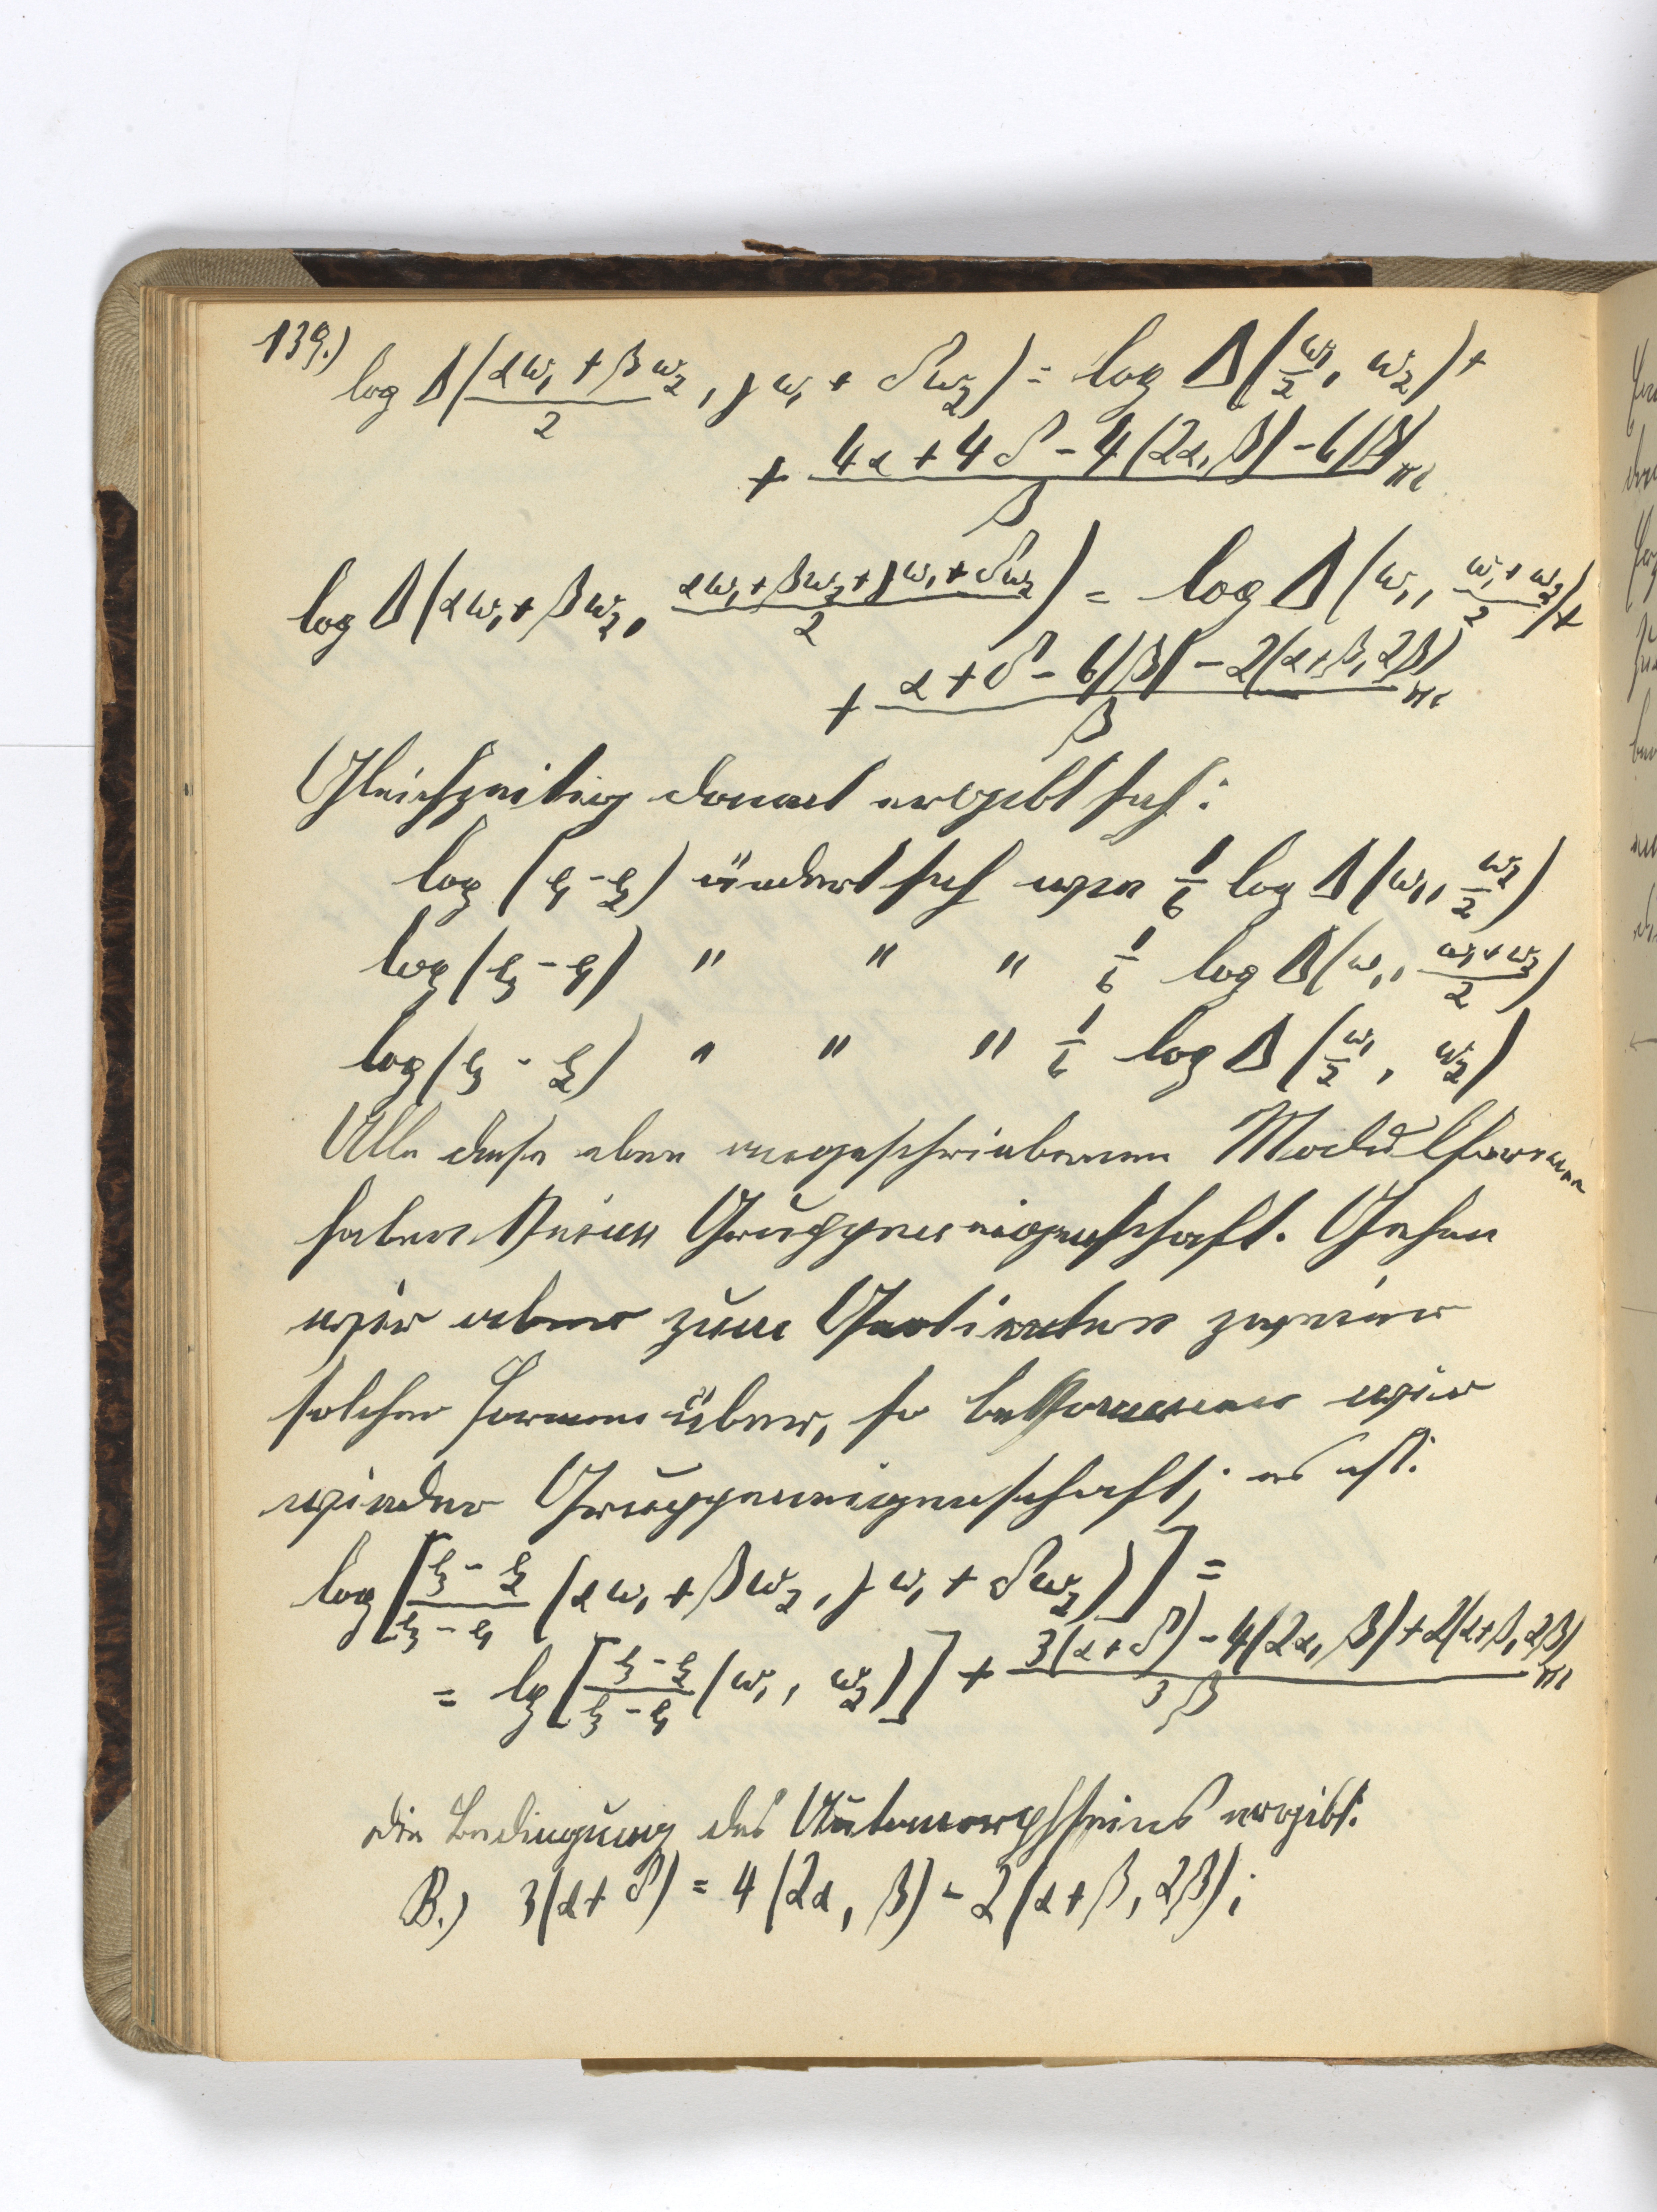 139.)
log Δ((αω₁ + βω₂)/2, γω₁ + δω₂) = log Δ(ω₁/2, ω₂) +
+ (4α + 4δ - 4(2α, β) - 6|β|)/β πi
log Δ(αω₁ + βω₂, (αω₁ + βω₂ + γω₁ + δω₂)/2) = log Δ(ω₁, (ω₁ + ω₂)/2) +
+ (α + δ - 6|β| - 2(α+β, 2β))/β πi
Gleichzeitig damit ergibt sich:
log (e₁ - e₂) ändert sich wie 1/6 log Δ(ω₁, ω₂/2)
log (e₃ - e₁) " " " 1/6 log Δ(ω₁, (ω₁ + ω₂)/2)
log (e₃ - e₂) " " " 1/6 log Δ(ω₁/2, ω₂)
Alle diese eben angeschriebenen Modulformen
haben keine Gruppeneigenschaft. Gehen
wir aber zum Quotienten zweier
solcher Formen über, so bekommen wir
wieder Gruppeneigenschaft; es ist:
log [(e₃ - e₂)/(e₃ - e₁) (αω₁ + βω₂, γω₁ + δω₂)] =
= lg [(e₃ - e₂)/(e₃ - e₁) (ω₁, ω₂)] + (3(α + δ) - 4(2α, β) + 2(α+β, 2β))/3β πi
Die Bedingung des Automorphseins ergibt:
B.) 3(α + δ) = 4(2α, β) - 2(α + β, 2β);